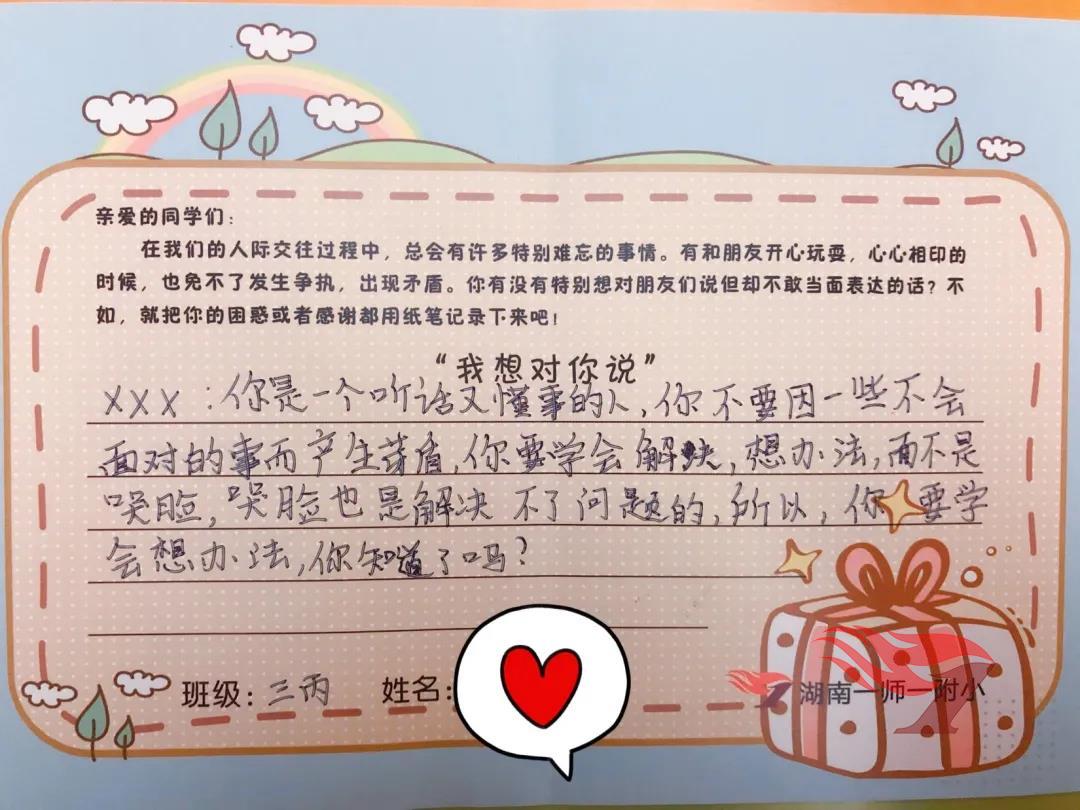 亲爱的同学们：
在我们的人际交往过程中，总会有许多特别难忘的事情。有和朋友开心玩耍，心心相印的
时候，也免不了发生争执，出现矛盾。你有没有特别想对朋友们说但却不敢当面表达的话？不
如，就把你的困惑或者感谢都用纸笔记录下来吧！
“我想对你说”
XXX：你是一个听话又懂事的人，你不要因一些不会
面对的事而产生茅盾，你要学会解决，想办法，而不是
哭脸，哭脸也是解决不了问题的，所以，你要学
会想办法，你知道了吗？
班级：三丙 姓名：
湖南一师一附小